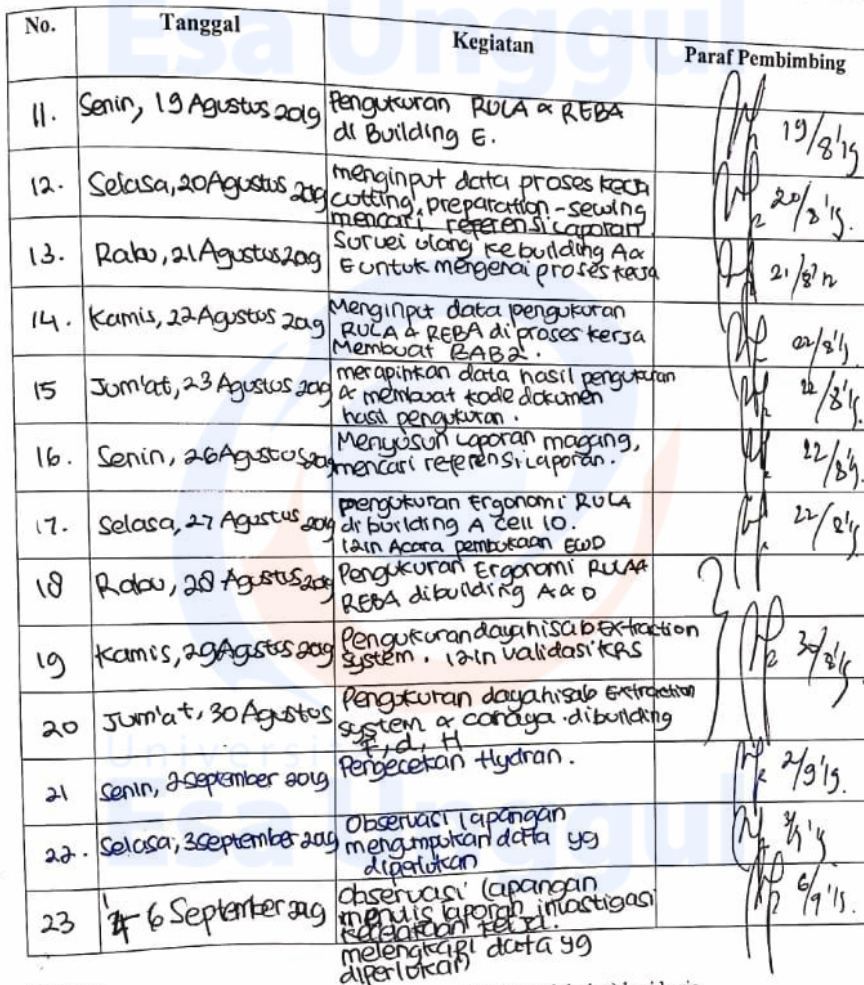 Esa Unggul
No. Tanggal Kegiatan Paraf Pembimbing
11. Senin, 19 Agustus 2019 Pengukuran RULA & REBA
di Building E.
19/8'19
12. Selasa, 20 Agustus 2019 menginput data proses kerja
cutting, preparation - sewing
mencari referensi laporan
20/8'19.
13. Rabu, 21 Agustus 2019 Survei ulang ke building A &
E untuk mengenai proses kerja
21/8'19
14. Kamis, 22 Agustus 2019 Menginput data pengukuran
RULA & REBA di proses kerja
Membuat BAB 2.
22/8'19
15 Jum'at, 23 Agustus 2019 merapihkan data hasil pengukuran
& membuat kode dokumen
hasil pengukuran.
22/8'19.
16. Senin, 26 Agustus 2019 Menyusun laporan magang,
mencari referensi laporan.
22/8'19.
17. Selasa, 27 Agustus 2019 pengukuran Ergonomi RULA
di building A cell 10.
izin Acara pembukaan EWD
22/8'19.
18 Rabu, 28 Agustus 2019 Pengukuran Ergonomi RULA &
REBA dibuilding A & D
19 Kamis, 29 Agustus 2019 Pengukuran dayahisab Extraction
system. izin validasi KRS
30/8'19
20 Jum'at, 30 Agustus Pengukuran dayahisab Extraction
system & cahaya. dibuilding
F, d, H
Universi
21 Senin, 2 September 2019 Pengecekan Hydran.
2/9'19.
Esa Unggul
22. Selasa, 3 September 2019 Observasi lapangan
mengumpulkan data yg
diperlukan
3/9'19
23 6 September 2019 observasi lapangan
menulis laporan invastigasi
kecelakaan kerja.
melengkapi data yg
diperlukan
6/9'19.